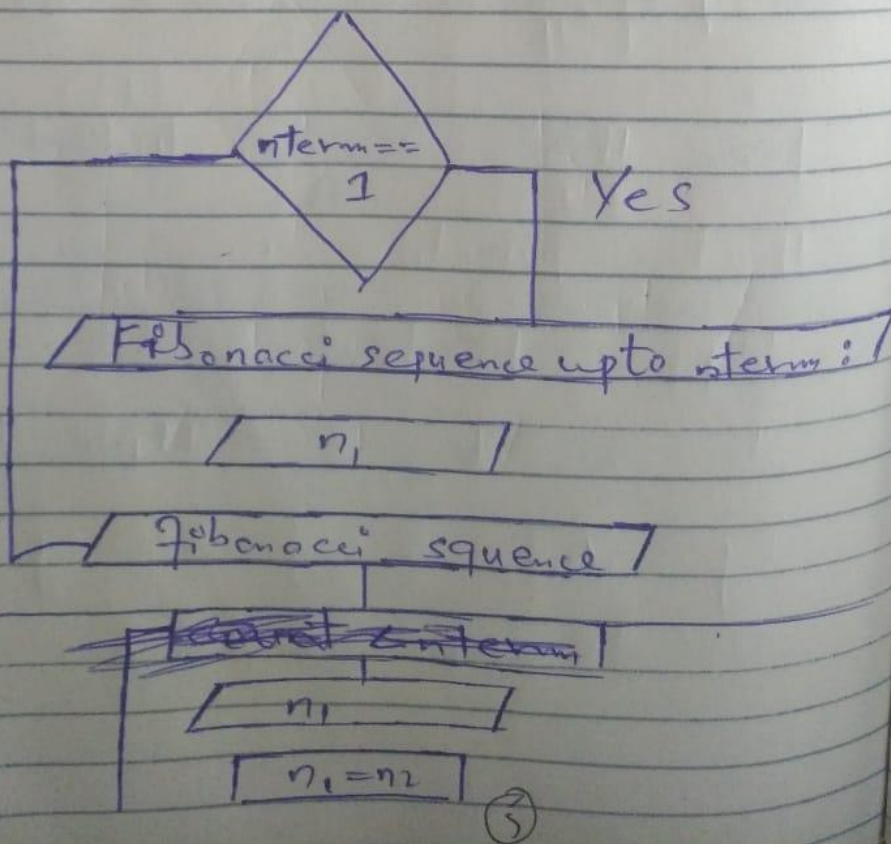 nterm==
1
Yes
Fibonacci sequence upto nterm:
n1
fibonacci squence
n1
n1=n2